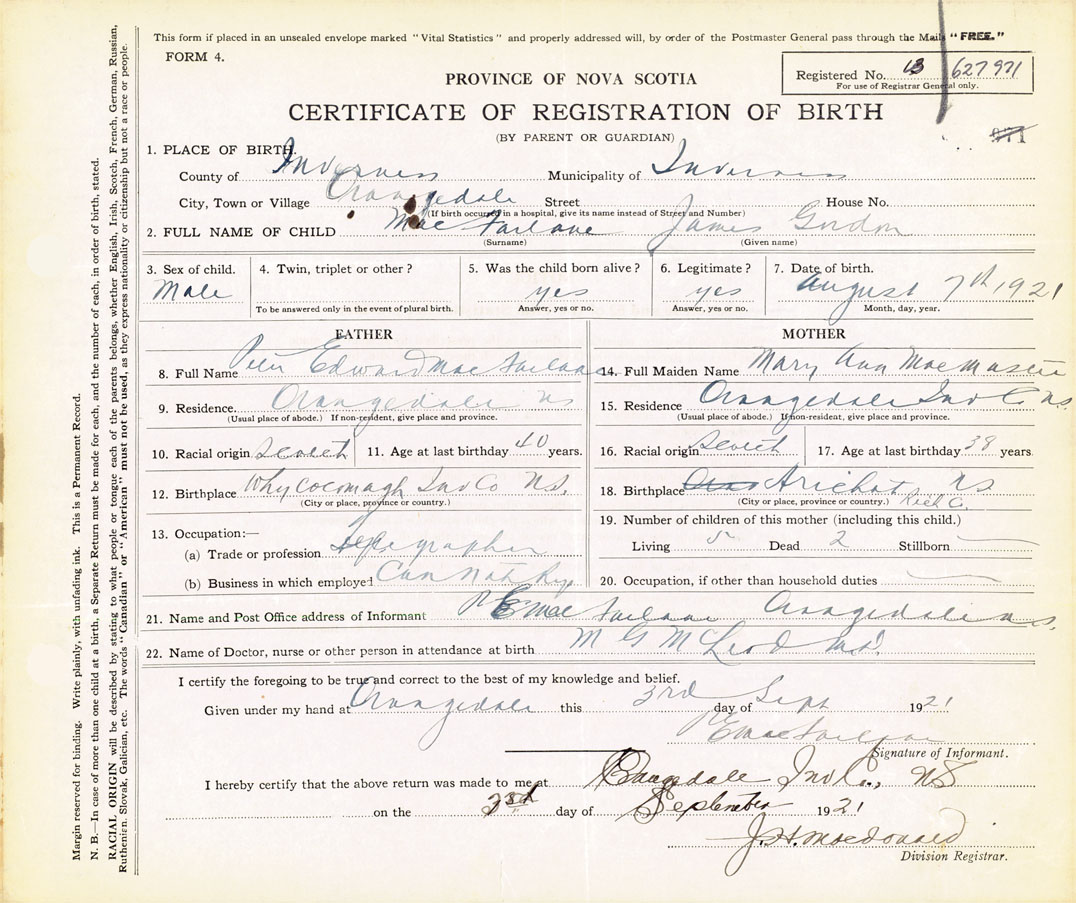 This form if placed in an unsealed envelope marked "Vital Statistics" and properly addressed will, by order of the Postmaster General pass through the Mails "FREE."
FORM 4.
Registered No. 13 627 971
For use of Registrar General only.
PROVINCE OF NOVA SCOTIA
CERTIFICATE OF REGISTRATION OF BIRTH
(BY PARENT OR GUARDIAN)
971
1. PLACE OF BIRTH.
County of Inverness Municipality of Inverness
City, Town or Village Orangedale Street House No.
(If birth occurred in a hospital, give its name instead of Street and Number)
2. FULL NAME OF CHILD MacFarlane James Gordon
(Surname) (Given name)
3. Sex of child. 4. Twin, triplet or other? 5. Was the child born alive? 6. Legitimate? 7. Date of birth.
Male yes yes August 7th, 1921
To be answered only in the event of plural birth. Answer, yes or no. Answer, yes or no. Month, day, year.
FATHER
8. Full Name Peter Edward MacFarlane
9. Residence. Orangedale NS
(Usual place of abode.) If non-resident, give place and province.
10. Racial origin Scotch 11. Age at last birthday 40 years.
12. Birthplace Whycocomagh Inv Co N.S.
(City or place, province or country.)
13. Occupation:—
(a) Trade or profession Telegrapher
(b) Business in which employed Can Nat Ry
MOTHER
14. Full Maiden Name Mary Ann MacMaster
15. Residence Orangedale Inv C NS.
(Usual place of abode.) If non-resident, give place and province.
16. Racial origin Scotch 17. Age at last birthday 38 years.
18. Birthplace Arichat NS
(City or place, province or country.) Rich C.
19. Number of children of this mother (including this child.)
Living 5 Dead 2 Stillborn
20. Occupation, if other than household duties
21. Name and Post Office address of Informant P E MacFarlane Orangedale N.S.
22. Name of Doctor, nurse or other person in attendance at birth M G McLeod M.D.
I certify the foregoing to be true and correct to the best of my knowledge and belief.
Given under my hand at Orangedale this 3rd day of Sept 1921
P E MacFarlane
Signature of Informant.
I hereby certify that the above return was made to me at Orangedale Inv C., NS
on the 3rd day of September 1921
J. H. MacDonald
Division Registrar.
Margin reserved for binding. Write plainly, with unfading ink. This is a Permanent Record.
N. B.—In case of more than one child at a birth, a Separate Return must be made for each, and the number of each, in order of birth, stated.
RACIAL ORIGIN will be described by stating to what people or tongue each of the parents belongs, whether English, Irish, Scotch, French, German, Russian,
Ruthenian, Slovak, Galician, etc. The words "Canadian" or "American" must not be used, as they express nationality or citizenship but not a race or people.